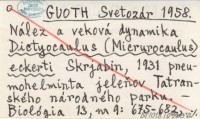 GUOTH Svetozár 1958.
Nález a veková dynamika
Dictyocaulus (Micrurocaulus)
eckerti Skrjabin, 1931 pneu-
mohelminta jeleňov Tatran-
ského národného parku. -
Biológia 13, no 9: 675-682.